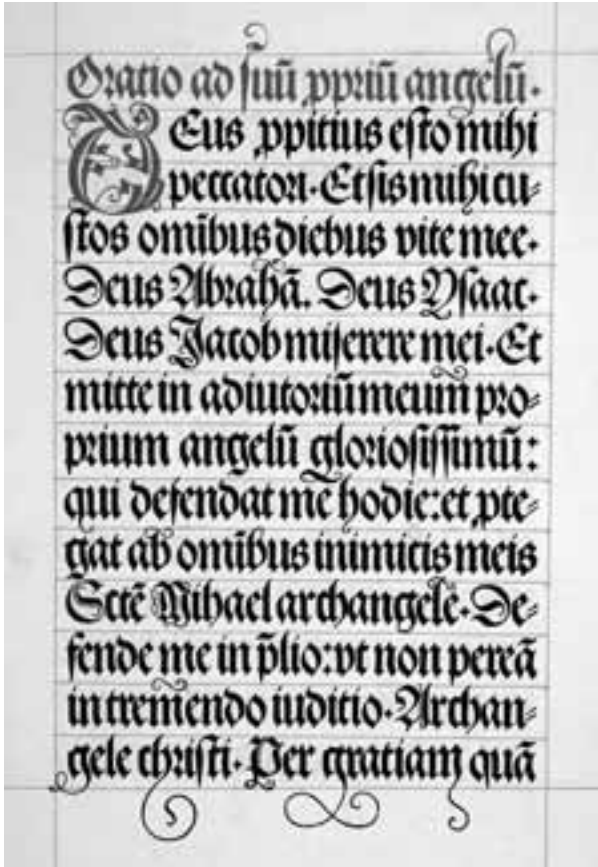 Oratio ad suū ꝓpriū angelū.
DEus ꝓpitius esto mihi
peccatori. Et sis mihi cu⸗
stos omībus diebus vite mee.
Deus Abrahā. Deus Ysaac.
Deus Jacob miserere mei. Et
mitte in adiutoriū meum pro⸗
prium angelū gloriosissimū:
qui defendat me hodie: et ꝓte⸗
gat ab omībus inimicis meis
Sctē Mihael archangele. De⸗
fende me in p̄lio: vt non pereā
in tremendo iuditio. Archan⸗
gele christi. Per gratiam quā